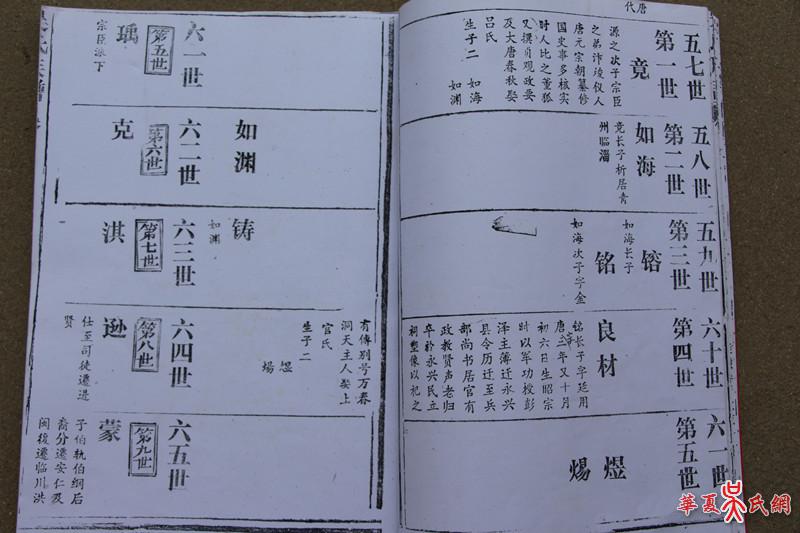 唐代
五七世
第一世
竟
源之次子宗臣
之弟汴竣仪人
唐元宗朝纂修
国史事多核实
时人比之董狐
又撰贞观政要
及大唐春秋娶
吕氏
生子二 如海 如渊
五八世
第二世
如海
竞长子析居青
州临淄
五九世
第三世
镕
如海长子
铭
如海次子字金
六十世
第四世
良材
铭长子字廷用
唐三年又十月
初六日生昭宗
时以军功授彭
泽主簿迁永兴
县令历迁至兵
部尚书居官有
政教贤声老归
卒於永兴民立
祠塑像以祀之
六一世
第五世
煜
煬
有傳别号万春
洞天主人娶上
官氏
生子二 煜 煬
如渊
铸
如渊
六一世
第五世
瑀
宗臣派下
六二世
第六世
克
六三世
第七世
洪
六四世
第八世
逊
仕至司徒遷进
贤
六五世
第九世
蒙
子伯轨伯纲后
裔分遷安仁及
闽後遷临川洪
華夏吴氏網